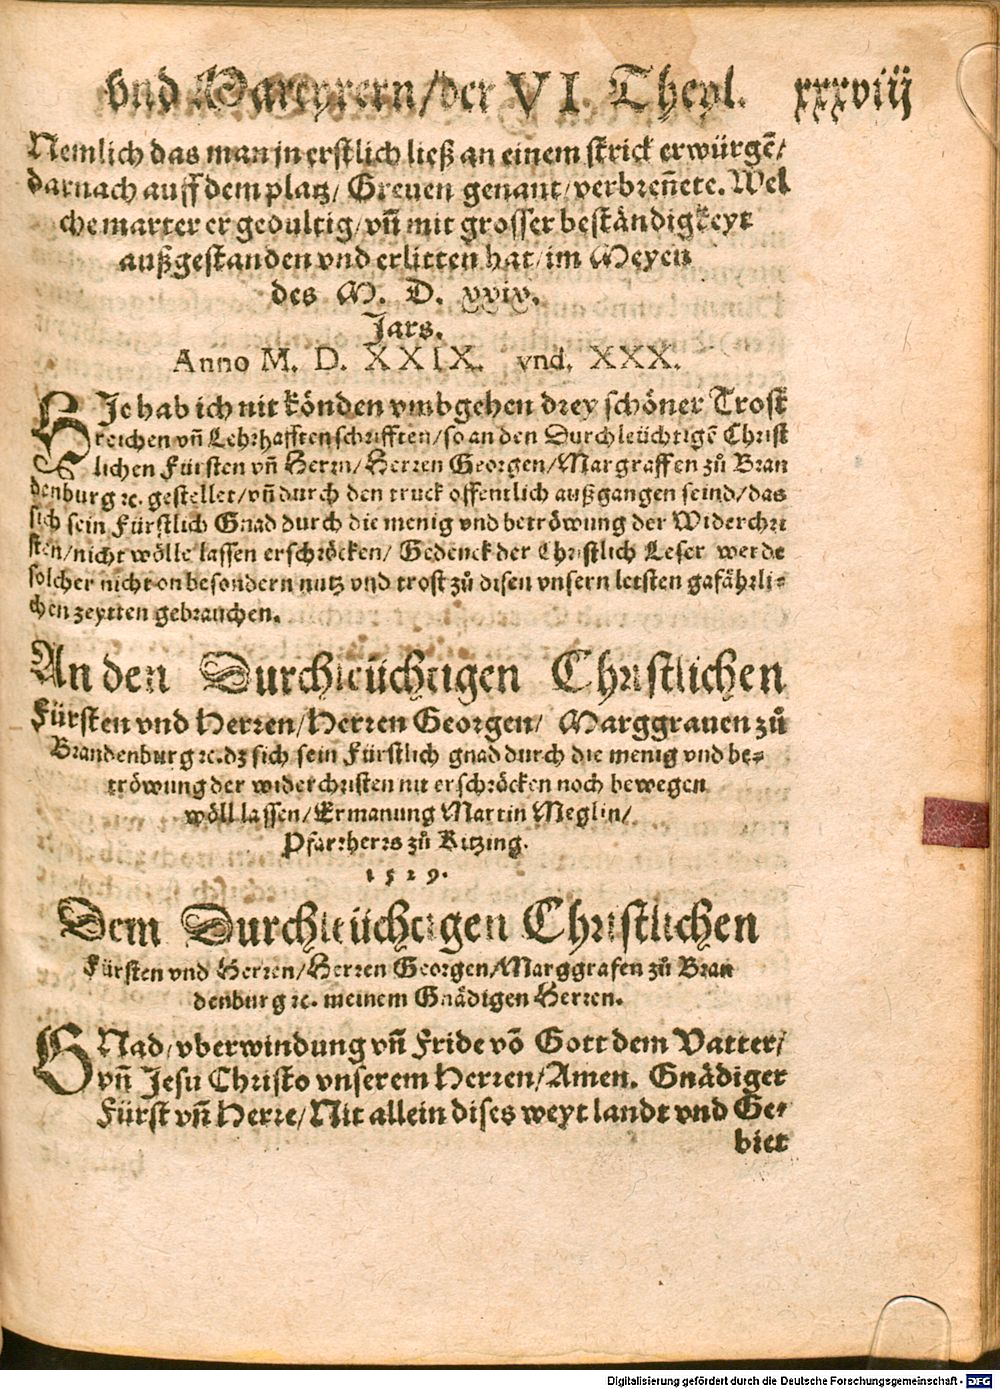 vnd Martyrern / der VI. Theyl. xxxviij
Nemlich das man jn erstlich ließ an einem strick erwürgē /
darnach auff dem platz / Greuen genant / verbreñete. Wel
che marter er gedultig / vñ mit grosser beständigkeyt
außgestanden vnd erlitten hat / im Meyen
des M. D. xxix.
Jars.
Anno M. D. XXIX. vnd. XXX.
HJe hab ich nit könden vmbgehen drey schöner Trost
reichen vñ Lehrhafften schrifften / so an den Durchleüchtigē Christ
lichen Fürsten vñ Herrn / Herren Georgen / Margraffen zů Bran
denburg ꝛc. gestellet / vñ durch den truck offentlich außgangen seind / das
sich sein Fürstlich Gnad durch die menig vnd betröwung der Widerchri
sten / nicht wölle lassen erschröcken / Gedenck der Christlich Leser werde
solcher nicht on besondern nutz vnd trost zů disen vnsern letsten gafährli-
chen zeytten gebrauchen.
An den Durchleüchtigen Christlichen
Fürsten vnd Herren / Herren Georgen / Marggrauen zů
Brandenburg ꝛc. dz sich sein Fürstlich gnad durch die menig vnd be-
tröwung der widerchristen nit erschröcken noch bewegen
wöll lassen / Ermanung Martin Meglin /
Pfarrherrs zů Kitzing.
1529.
Dem Durchleüchtigen Christlichen
Fürsten vnd Herren / Herren Georgen / Marggrafen zů Bran
denburg ꝛc. meinem Gnädigen Herren.
GNad / vberwindung vñ Fride vō Gott dem Vatter /
vñ Jesu Christo vnserem Herren / Amen. Gnädiger
Fürst vñ Herre / Nit allein dises weyt landt vnd Ge-
biet
Digitalisierung gefördert durch die Deutsche Forschungsgemeinschaft - DFG